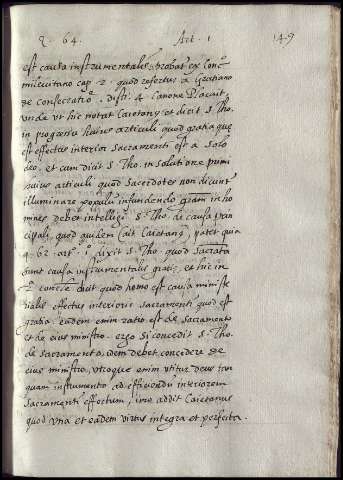 q. 64. Art. 1 149
est causa instrumentalis, probat ex Conc.
mileuitano cap. 2. quod refertur a Gratiano
de consecratio.e disti. 4. Canone Placuit.
vnde ut hic notat Caietans, et dicit S. Tho.
in progressu huius articuli quod gratia que
est effectus interior sacramenti est a solo
deo, et cum dicit S. Tho. in solutione primi
huius articuli quod sacerdotes non dicunt
illuminare populum infundendo gram in ho
mines debet intelligi S. Tho. de causa prin
cipali, quod quidem (ait Caietans) patet quia
q. 62. art. 1.o dixit S. Tho. quod sacrata
sunt causa instrumentalis gratie, et hic in
2.a concle. dicit quod homo est causa ministe
rialis effectus interioris sacramenti quod est
gratia. eadem enim ratio est de sacramento
et de eius ministro. ergo si concedit S. Tho.
de sacramento, idem debet concedere de
eius ministro, vtroque enim vtitur deus tan
quam instrumento ad efficiendum interiorem
sacramenti effectum, imo addit Caietanus
quod vna et eadem virtus integra et perfecta